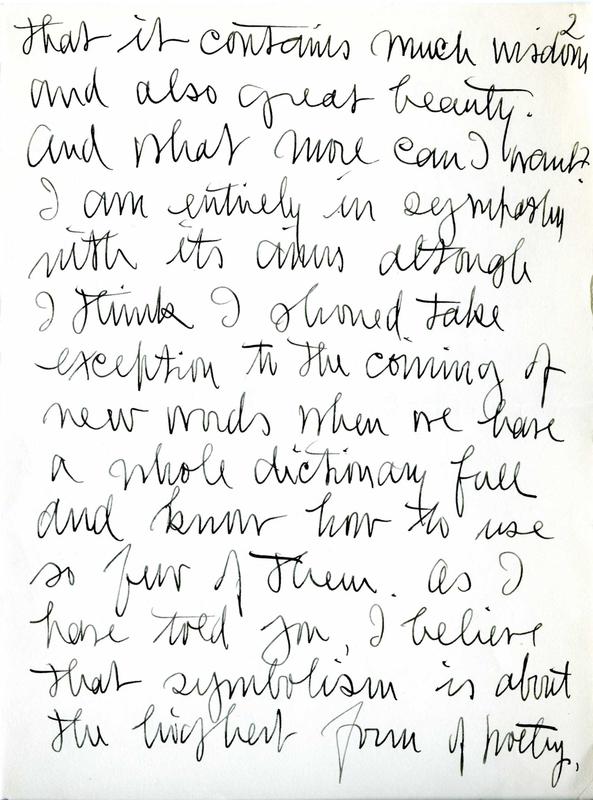 2
that it contains much wisdom
and also great beauty.
And what more can I want?
I am entirely in sympathy
with its aims although
I think I should take
exception to the coining of
new words when we have
a whole dictionary full
and know how to use
so few of them. As I
have told you, I believe
that symbolism is about
the highest form of poetry,